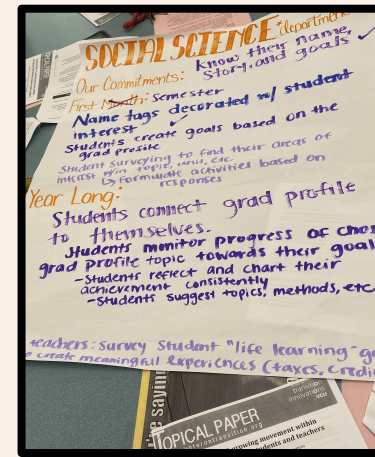 SOCIAL SCIENCE department
Know their name,
story, and goals ✓
Our Commitments:
First Month: Semester
Name tags decorated w/ student
interest ✓
Students create goals based on the
grad profile
Student surveying to find their areas of
interest w/in topic, unit, etc
↳ formulate activities based on
responses
Year Long:
Students connect grad profile
to themselves.
Students monitor progress of
grad profile topic towards their goal
-Students reflect and chart their
achievement consistently
-Students suggest topics, methods, etc
teachers: survey student "life learning"
create meaningful experiences (taxes,
transition
innovations
vcu
TOPICAL PAPER
growing movement within
students and teachers